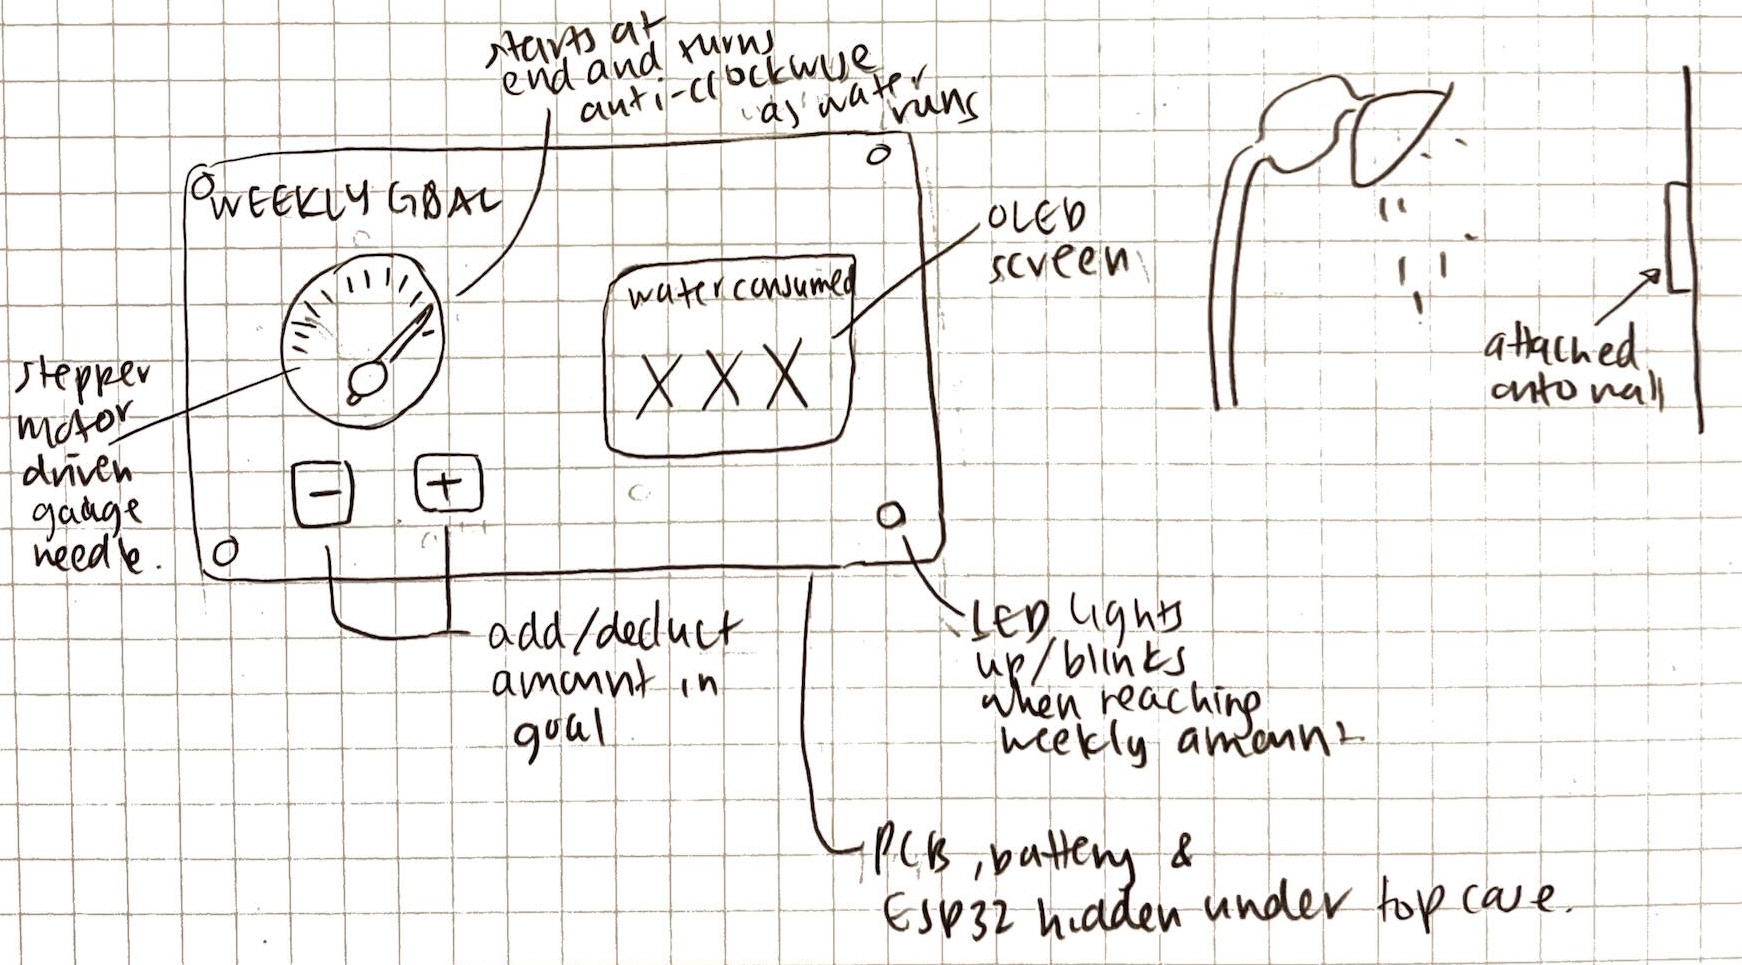 starts at
end and turns
anti-clockwise
as water
runs
WEEKLY GOAL
water consumed
XXX
OLED
screen
stepper
motor
driven
gauge
needle.
−
+
add/deduct
amount in
goal
LED lights
up/blinks
when reaching
weekly amount
PCB, battery &
ESP32 hidden under top case.
attached
onto wall